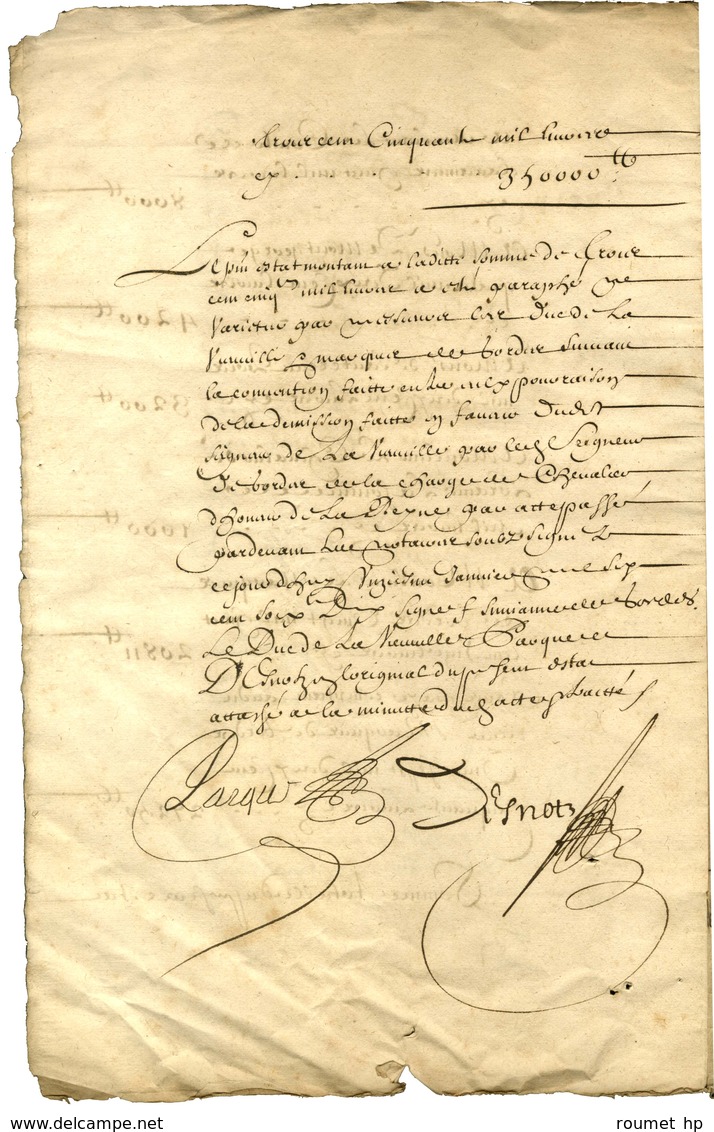 Trois cem Cinquante mil livres
cy . . . 350000 tt
Le pnt estat montant a ladite somme de Trois
cem cinqte mil livres a esté paraphé ne
Varietur par Messieurs les Duc de La
Vieuville & marquis de Sordis suivant
la convention faitte entre eux pour raison
de la demission faitte en faveur dudit
Seigneur de La Vieuville par led Seigneur
de Sordis de la charge de Chevalier
dhonneur de La Reyne par acte passé
pardevant les notaires soubz signe
cejourdhuy Janvier mil six
cem soix Dix signé de Sordis,
Le Duc de La Vieuville Parque et
Desnotz loriginal du present estat
attaché a la minutte dud acte
Parque
Desnotz
www.delcampe.net
roumet_hp